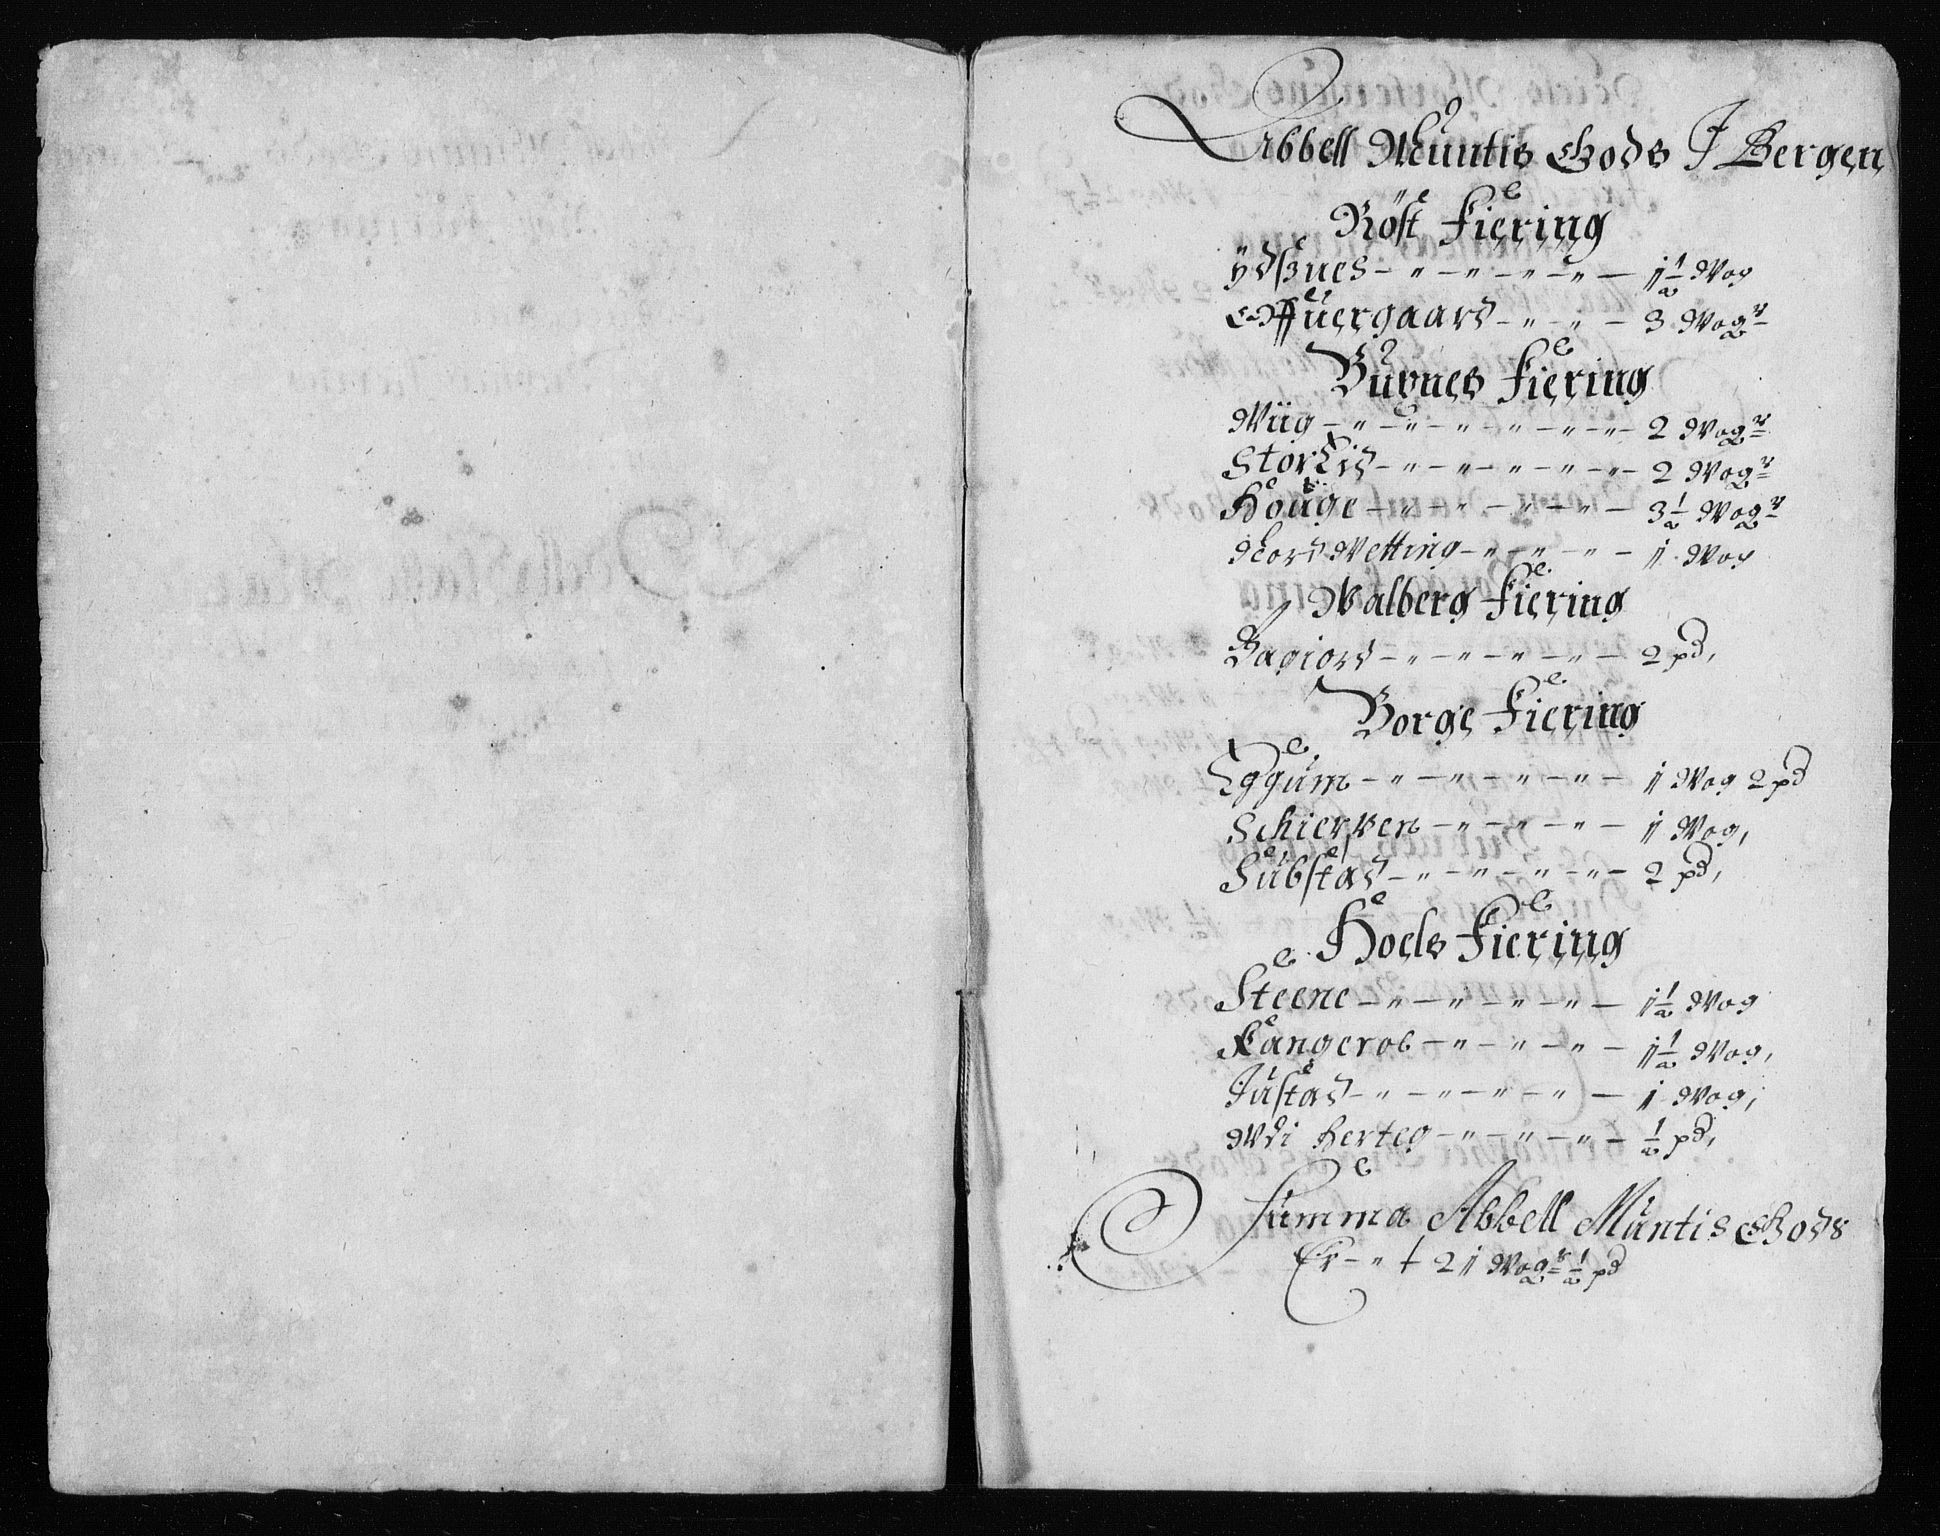 Abbell Muntis Gods J Bergen
Röst Fiering
ÿdßnes – „ – „ – „ – „ – 1½ Wog
Offuergaard – „ – „ – 3 Wogr
Buxnes Fiering
Wiig – „ – „ – „ – „ – „ – „ – 2 Wogr
Storfid – „ – „ – „ – „ – „ – 2 Wogr
Houge – „ – „ – „ – „ – 3½ Wogr
Nord Wetting – „ – „ – „ – 1 Wog
Walberg Fiering
Bagiord – „ – „ – „ – „ – 2 pd,
Borge Fiering
Eggum – „ – „ – „ – „ – 1 Wog 2 pd
Schierpen – „ – „ – „ – 1 Wog,
Substad – „ – „ – „ – „ – 2 pd,
Hoels Fiering
Steene – „ – „ – „ – „ – 1½ Wog
Fangerob – „ – „ – „ – 1½ Wog,
Justad – „ – „ – „ – „ – 1 Wog,
Wdi herteg – „ – „ – „ – ½ pd,
Summa Abbell Muntis Gods
Er – „ – 21 Wogr ½ pd